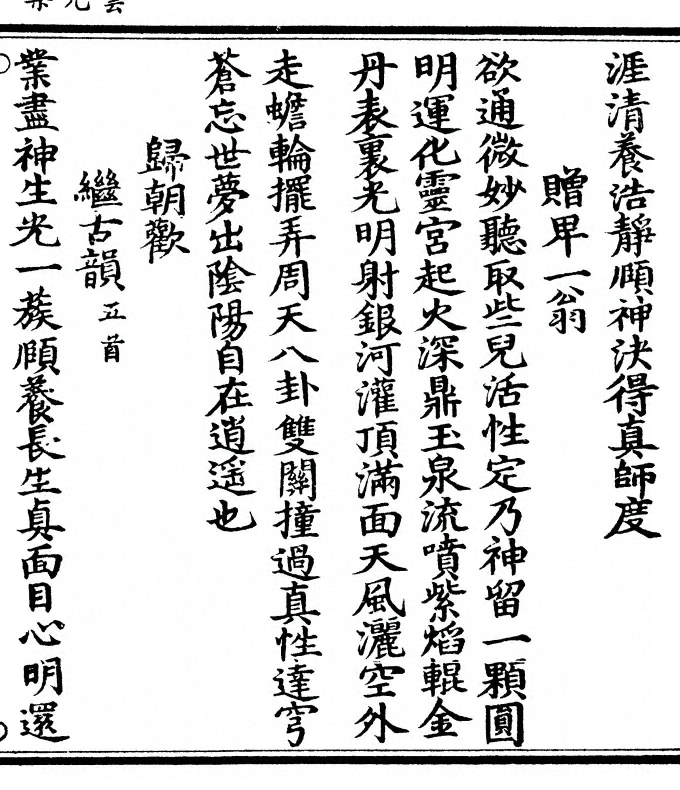 涯清養浩靜順神決得真師度
贈卑一翁
欲通微妙聽取些兒活性定乃神留一顆圓
明運化靈宮起火深鼎玉泉流噴紫焰輥金
丹表裏光明射銀河灌頂滿面天風灑空外
走蟾輪擺弄周天八卦雙關撞過真性達穹
蒼忘世夢出陰陽自在逍遥也
歸朝歡
繼古韻五首
業盡神生光一蔟頤養長生真面目心明還